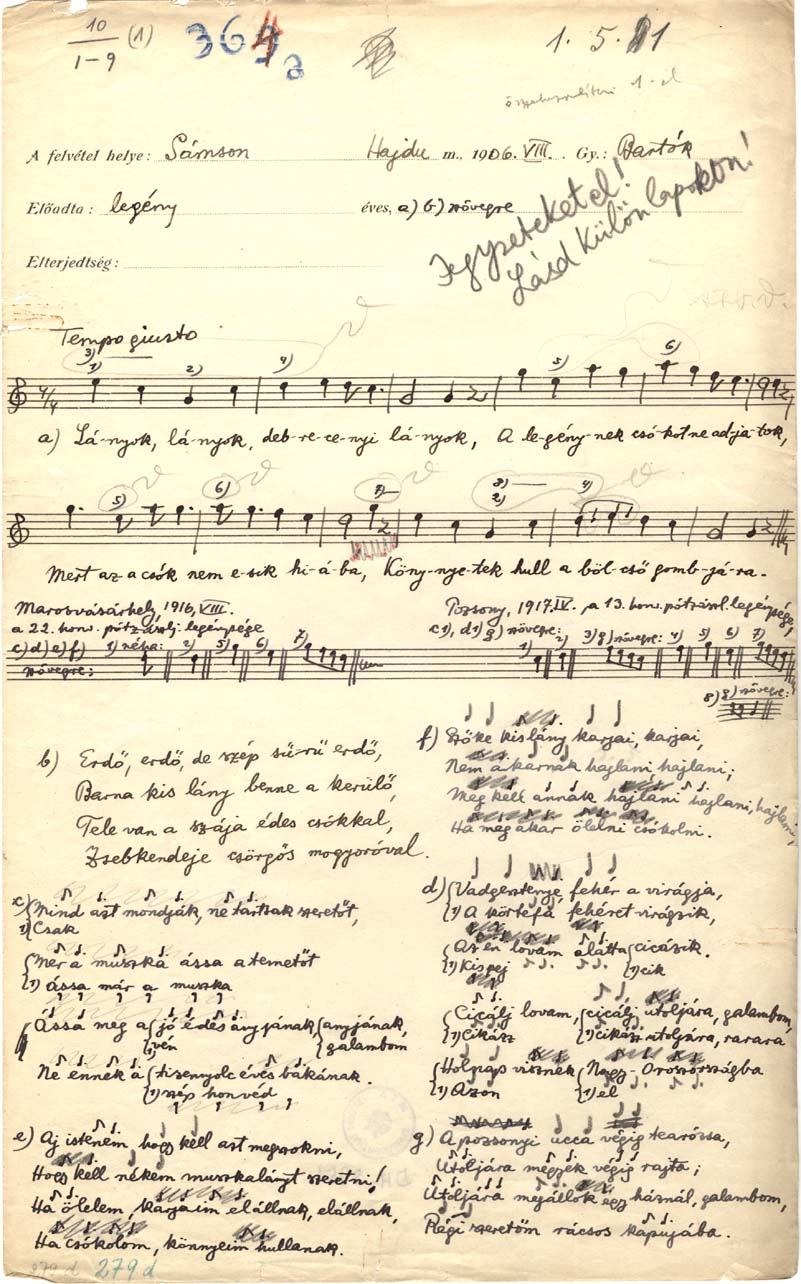 10
1–9
(1)
1. 5.
A felvétel helye: Sámson Hajdu m., 1906. VIII. Gy.: Bartók
Előadta: legény éves, a) b) szövegre
Elterjedtség:
Jegyzeteket el!
Lásd külön lapokon!
Tempo giusto
3)
1) 2) 4) 5) 6)
4/4
a) Lá-nyok, lá-nyok, deb-re-ce-nyi lá-nyok, A le-gény-nek csó-kot ne ad-ja-tok,
5) 6) 7) 8) 2) 4)
Mert az a csók nem e-sik hi-á-ba, Köny-nye-tek hull a böl-cső gomb-já-ra.
Marosvásárhely, 1916, VIII.
a 22. honv. pótzászlj. legénysége
c) d) e) f) szövegre:
1) néha: 2) 5) 6) 7)
Pozsony, 1917. IV., a 13. honv. pótzászl. legénysége,
c1, d1) g) szövegre:
1) 2) 3) g) szövegre: 4) 5) 6) 7)
8) g) szövegre:
b) Erdő, erdő, de szép sű-rű erdő,
Barna kis lány benne a kerülő,
Tele van a szája édes csókkal,
Zsebkendeje csörgős mogyoróval.
c) Mind azt mondják, ne tartsak szeretőt,
1) Csak
Mer a muszka ássa a temetőt
1) ássa már a muszka
Ássa meg a jó édes anyjának, anyjának,
1) vén galambom
Ne ennek a tizennyolc éves bakának.
1) szép honvéd
e) Aj istenem hogy kell azt megszokni,
Hogy kell nékem muszkalányt szeretni!
Ha ölelem, karjaim elállnak, elállnak,
Ha csókolom, könnyeim hullanak.
279 d
f) Szőke kislány karjai, karjai,
Nem akarnak hajlani hajlani;
Meg kell annak hajlani hajlani, hajlani,
Ha meg akar ölelni csókolni.
d) Vadgesztenye fehér a virágja,
1) A körtefa fehéret virágzik,
Az én lovam alatta cicázik.
1) Kispej 1) cik
Cicálj lovam, cicálj utoljára, galambom,
1) Cikázz 1) cikázz utoljára, rarara
Holnap visznek Nagy-Oroszországba
1) Azon 1) el
g) A pozsonyi ucca végig tearózsa,
Utoljára megyek végig rajta;
Utoljára megállok egy háznál, galambom,
Régi szeretőm rácsos kapujába.